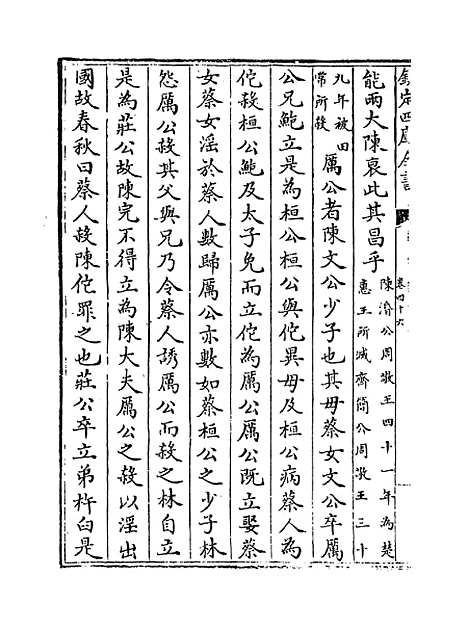 欽定四庫全書
卷四十六
能兩大陳衰此其昌乎 陳湣公周敬王四十一年為楚
惠王所滅齊簡公周敬王三十
九年被田
常所殺 厲公者陳文公少子也其母蔡女文公卒厲
公兄鮑立是為桓公桓公與佗異母及桓公病蔡人為
佗殺桓公鮑及太子免而立佗為厲公厲公既立娶蔡
女蔡女淫於蔡人數歸厲公亦數如蔡桓公之少子林
怨厲公殺其父與兄乃令蔡人誘厲公而殺之林自立
是為莊公故陳完不得立為陳大夫厲公之殺以淫出
國故春秋曰蔡人殺陳佗罪之也莊公卒立弟杵臼是